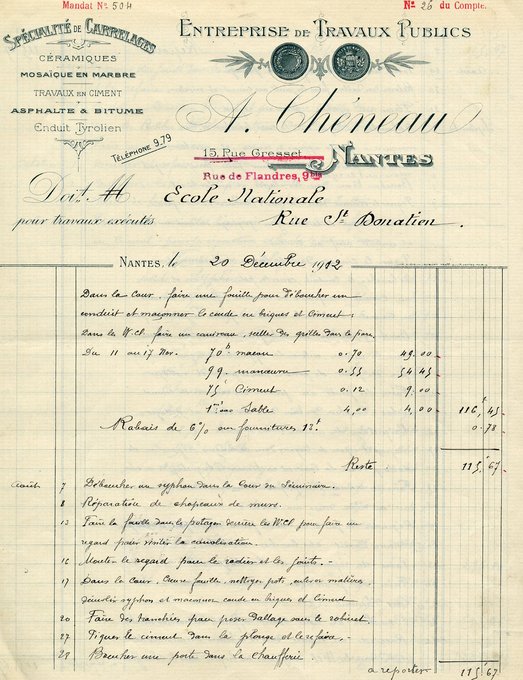 Mandat No 504
No 26 du Compte.
SPÉCIALITÉ DE CARRELAGES
CÉRAMIQUES
MOSAÏQUE EN MARBRE
TRAVAUX EN CIMENT
ASPHALTE & BITUME
Enduit Tyrolien
TÉLÉPHONE 9.79
ENTREPRISE DE TRAVAUX PUBLICS
A. Chéneau
15, Rue Gresset
NANTES
Rue de Flandres, 9bis
Doit M Ecole Nationale
pour travaux exécutés Rue St Donatien.
NANTES, le 20 Décembre 1912
Dans la Cour, faire une fouille pour déboucher un
conduit et maçonner le coude en briques et Ciment;
Dans les W.Cl. faire un caniveau, sceller des grilles dans la
Du 11 au 17 Nov. 70h macon 0.70 49.00
99 manœuvre 0.55 54.45
75k Ciment 0.12 9.00
1m3 Sable 4,00 4,00 116,45
Rabais de 6% sur fournitures 13f 0.78
Reste 115,67
7 Déboucher un syphon dans la Cour du Séminaire.
8 Réparation de chapeaux de murs.
13 Faire la fouille dans le potager derrière les W.Cl pour faire un
regard pour visiter la canalisation.
16 Monter le regard, le radier et les joints.-
17 Dans la Cour, fouille, nettoyer pots, enlever matières,
démolir syphon et maçonner coude en briques et Ciment
20 Faire des tranchées pour poser Dallage sous le robinet.
27 Piquer le ciment dans la plonge et le refaire.-
28 Boucher une porte dans la chaufferie.
à reporter 115,67